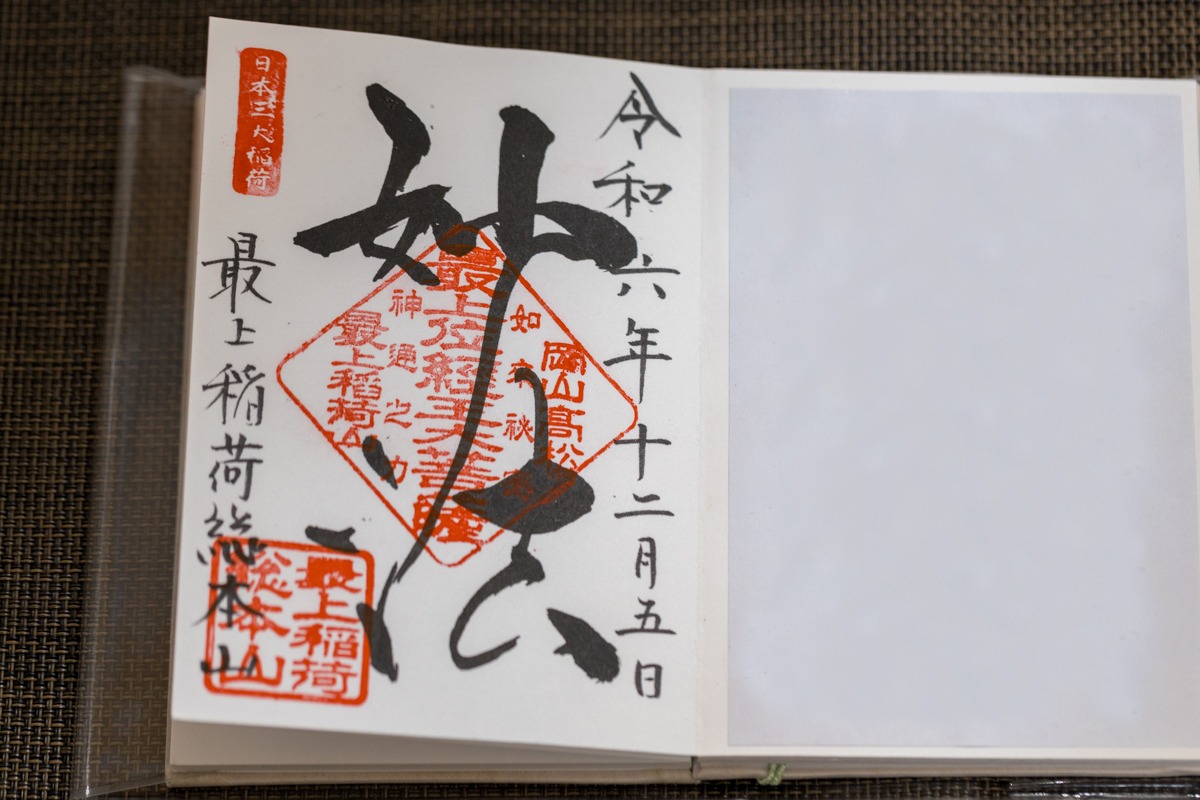 令和六年十二月五日
妙法
岡山高松
如来秘密
最上位経王大菩薩
神通之力
最上稲荷山
日本三大稲荷
最上稲荷総本山
最上稲荷
総本山